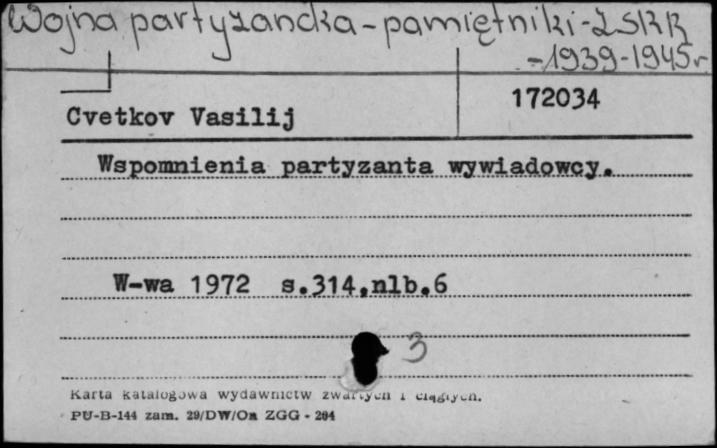 Wojna partyzancka - pamiętniki - ZSRR
- 1939-1945 r.
172034
Cvetkov Vasilij
Wspomnienia partyzanta wywiadowcy.
W-wa 1972 s.314,nlb.6
3
Karta katalogowa wydawnictw zwartych i ciągłych.
PU-B-144 zam. 29/DW/Oa ZGG - 294